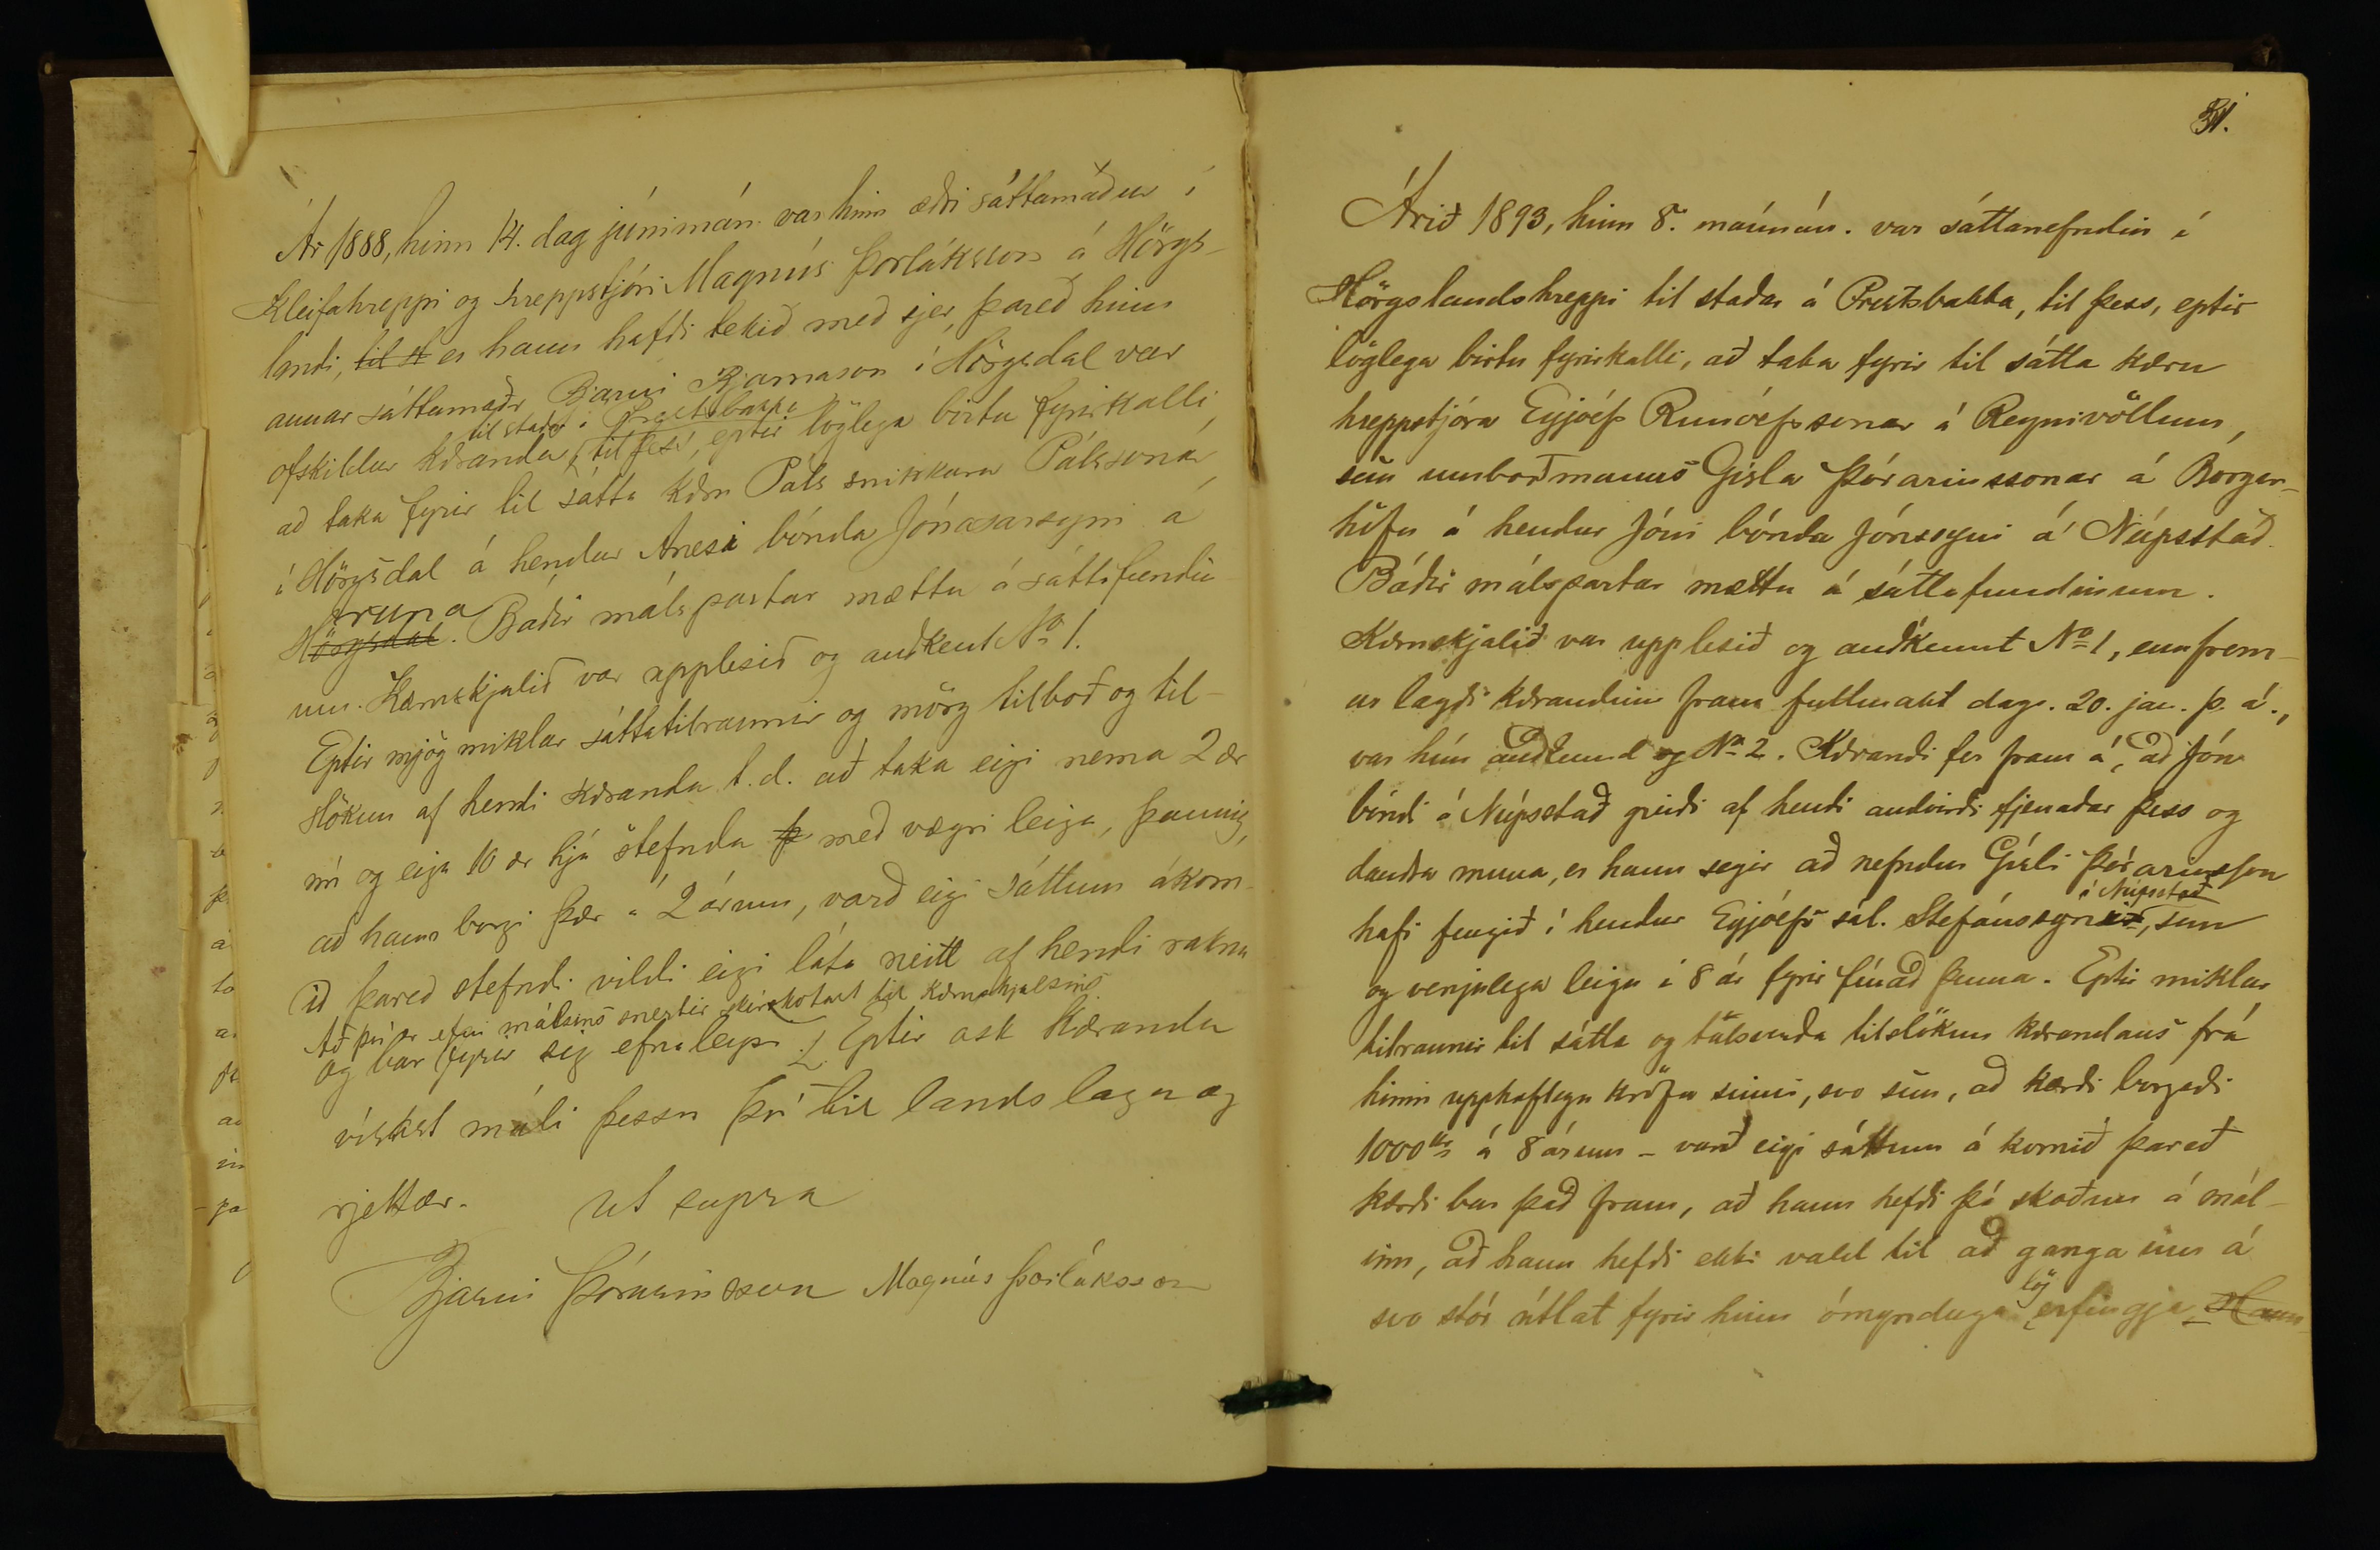 Ár 1888, hinn 14. dag júnímán. var hinn æðri sáttamaður í
Kleifahreppi og hreppstjóri Magnús Þorláksson á Hörgs-
landi, til st er hann hafði tekið með sjer, þareð hinn
annar sáttamaðr Bjarni Bjarnason í Hörgsdal var
til staðar í Prestsbakka
ofskildur kæranda, til þess, eptir löglega birtu fyrirkalli
að taka fyrir til sátta kæru Páls snikkara Pálssonar
í Hörgsdal á hendur Anesi bónda Jónassarsyni á
Hruna
Hörgsdal. Báðir málspartar mættu á sáttafundin-
um. Kæruskjalið var upplesið og auðkent No 1.
Eptir mjög miklar sáttatilraunir og mörg tilboð og til-
slökun af hendi kæranda t.d. að taka eigi nema 2 ær
nú og eiga 10 ær hjá stefnda þ með vægri leigu, þannig,
að hann borgi þær á 2 árum, varð eigi sáttum ákom-
ið þareð stefndi vildi eigi láta neitt af hendi rakna
Að því er efni málsins snertir skírskotast til kæruskjalsins
og bar fyrir sig efnaleysi. Eptir ósk kæranda
vískst máli þessu því til landslaga og
rjettar. Ut supra
Bjarni Þórarinsson Magnús Þorláksson
31.
Árið 1893, hinn 8. maímán. var sáttanefndin í
Hörgslandshreppi til staðar á Prestsbakka, til þess, eptir
löglega birtu fyrirkalli, að taka fyrir til sátta kæru
hreppstjóra Eyjólfs Runólfssonar á Reynivöllum,
sem umboðsmanns Gísla Þórarinssonar á Borgar-
höfn á hendur Jóni bónda Jónssyni á Núpsstað.
Báðir málspartar mættu á sáttafundinum.
Kæruskjalið var upplesið og auðkennt No 1, ennfrem-
ur lagði kærandinn fram fullmakt dags. 20. jan. þ. á.,
var hún auðkennd og No 2. Kærandi fer fram á, að Jón
bóndi á Núpsstað greiði af hendi andvirði fjenaðar þess og
dauðra muna, er hann segir að nefndur Gísli Þórarinsson
á Núpsstað
hafi fengið í hendur Eyjólfi sál. Stefánssyni, sem
og venjulega leigu í 8 ár fyrir fénað þenna. Eptir miklar
tilraunir til sátta og talsverða tilslökun kærandans frá
hinni upphaflegu kröfu sinni, svo sem, að kærði borgaði
1000 kr á 8 árum – varð eigi sáttum á komið þareð
kærði bar það fram, að hann hefði þá skoðun á mál-
inu, að hann hefði ekki vald til að ganga inn á
lög
svo stór útlát fyrir hinn ómynduga erfingja. Hann